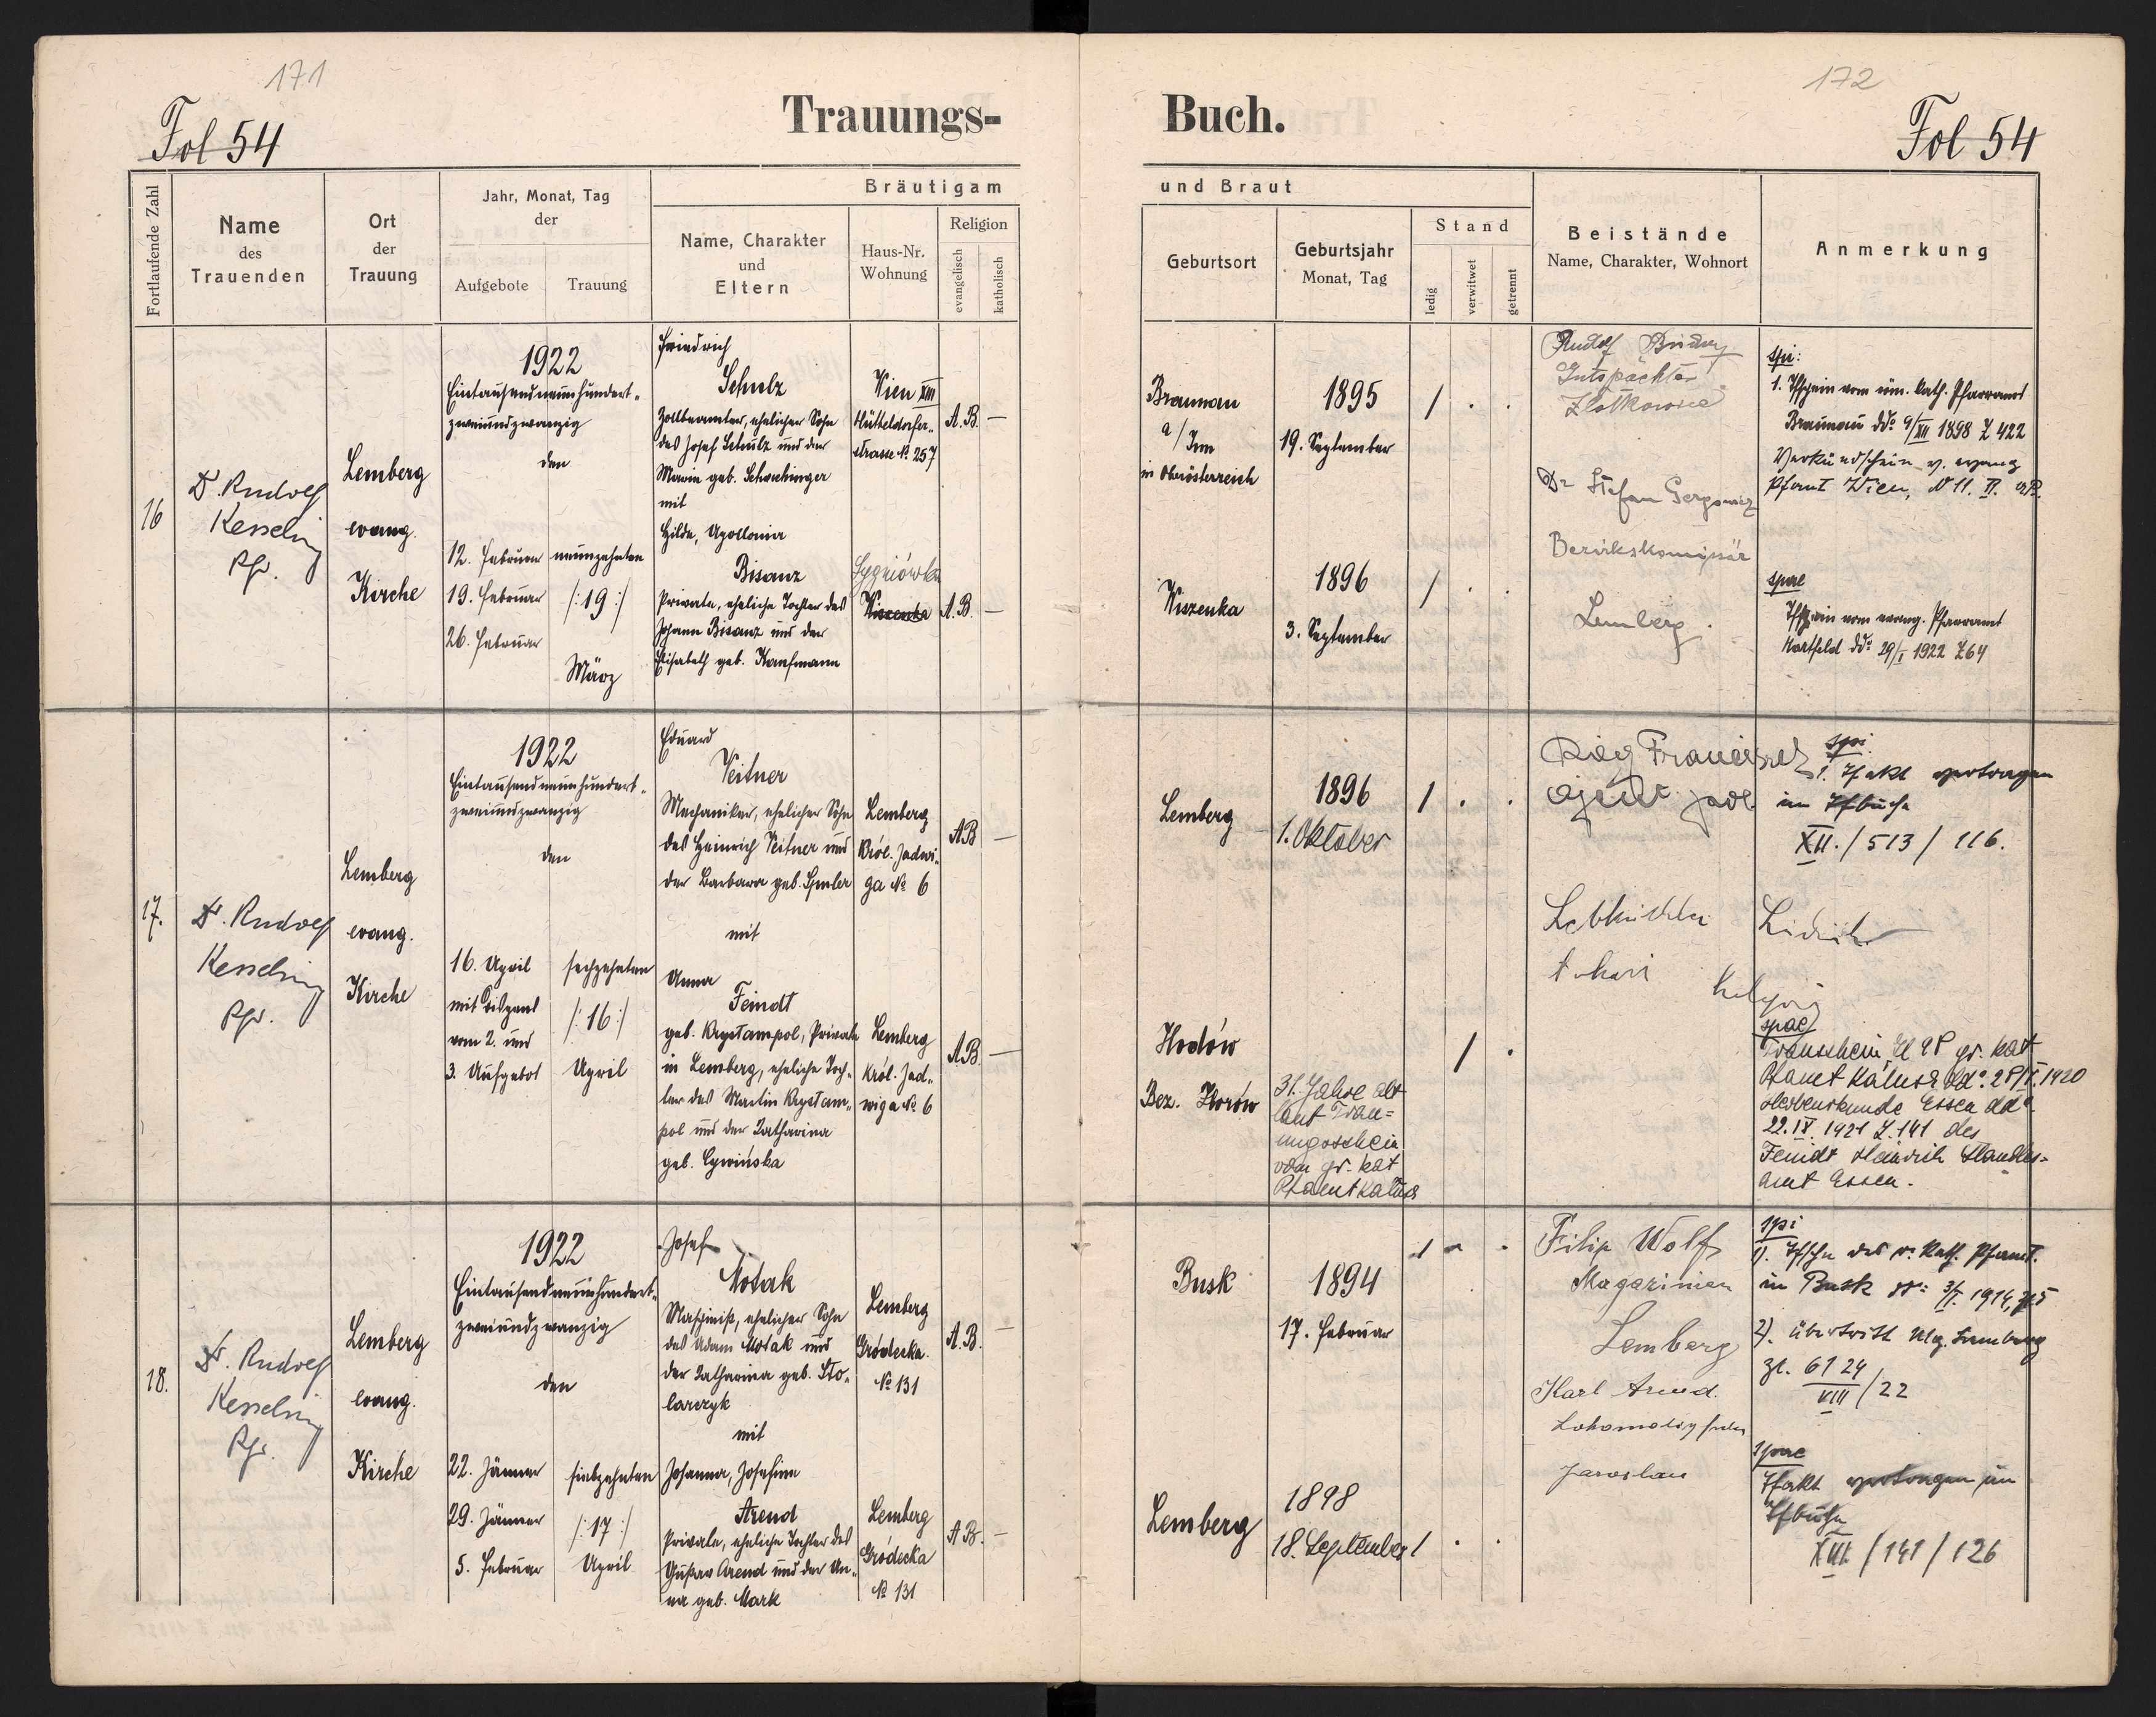 171
Fol 54
Trauungs-
Fortlaufende Zahl
Name
des
Trauenden
Ort
der
Trauung
Jahr, Monat, Tag
der
Aufgebote
Trauung
Bräutigam
Name, Charakter
und
Eltern
Haus-Nr.
Wohnung
Religion
evangelisch
katholisch
16
Dr. Rudolf
Kesselring
Pfr.
Lemberg
evang.
Kirche
1922
Eintausendneunhundert-
zweiundzwanzig
den
12. Februar
19. Februar
26. Februar
neunzehnten
/:19:/
März
Friedrich
Schulz
Zollbeamter, ehelicher Sohn
des Josef Schulz und der
Maria geb. Schwebinger
mit
Hilde, Apollonia
Bisanz
Private, eheliche Tochter des
Johann Bisanz und der
Elisabeth geb. Kaufmann
Wien XIII
Hütteldorfer-
strasse № 257
Sygniówka
Wiszenka
A.B. —
A.B. —
17.
Dr. Rudolf
Kesselring
Pfr.
Lemberg
evang.
Kirche
1922
Eintausendneunhundert-
zweiundzwanzig
den
16. April
mit Dispens
vom 2. und
3. Aufgebot
sechzehnten
/:16:/
April
Eduard
Veitner
Mechaniker, ehelicher Sohn
des Heinrich Veitner und
der Barbara geb. Spuler
mit
Anna
Feindt
geb. Krystampol, Private
in Lemberg, eheliche Toch-
ter des Martin Krystam-
pol und der Katharina
geb. Cywińska
Lemberg
Król. Jadwi-
ga № 6
Lemberg
Król. Jad-
wiga № 6
A.B —
A.B —
18.
Dr. Rudolf
Kesselring
Pfr.
Lemberg
evang.
Kirche
1922
Eintausendneunhundert-
zweiundzwanzig
den
22. Jänner
29. Jänner
5. Februar
siebzehnten
/:17:/
April
Josef
Notak
Maschinist, ehelicher Sohn
des Adam Notak und
der Katharina geb. Sto-
larczyk
mit
Johanna, Josefine
Arend
Private, eheliche Tochter des
Gustav Arend und der An-
na geb. Mark
Lemberg
Gródecka
№ 131
Lemberg
Gródecka
№ 131
A.B. —
A.B. —
172
Fol 54
Buch.
und Braut
Geburtsort
Geburtsjahr
Monat, Tag
Stand
ledig
verwitwet
getrennt
Beistände
Name, Charakter, Wohnort
Anmerkung
Braunau
a/Inn
in Oberösterreich
1895
19. September
/ . .
Wiszenka
1896
3. September
/ . .
Rudolf
Gutspächter
Dr Stefan
Bezirkskomissär
Lemberg.
spi:
1. Tfschein vom röm. kath. Pfarramt
Braunau dd° 9/XII 1898 Z 422
Verkündschein v. evang
Pfamt Wien, N 11. II. AB.
spae
Tfschein vom evang. Pfarramt
Hartfeld dd° 29/I 1922 Z 64
Lemberg
1896
1. Oktober
/ . .
Hodów
Bez. Zborów
31. Jahre alt
laut Trau-
ungsschein
vom gr. kat
Pfarramt Kalusz
/ .
Franciszek
ajent pol.
spi
1. Tfakt
im Tfbuche
XII./513/116.
spae
Trauschein gr. kat
Pfamt Kalusz
Sterbeurkunde Essen dd°
22.IX.1921 Z.141 des
Feindt Heinrich Standes-
amt Essen.
Busk
1894
17. Februar
/ . .
Lemberg
1898
18. September
/ . .
Filip Wolf
Magazinier
Lemberg
Karl Arend.
Jaroslau
spi
1). Tfschn des r. kath. Pfamt.
in Busk dd° 3/I. 1914, Z 5
2). Übertritt Mg. Lemberg
Zl. 6124
VIII/22
spae
Tfakt im
Tfbuche
XIII./141/126